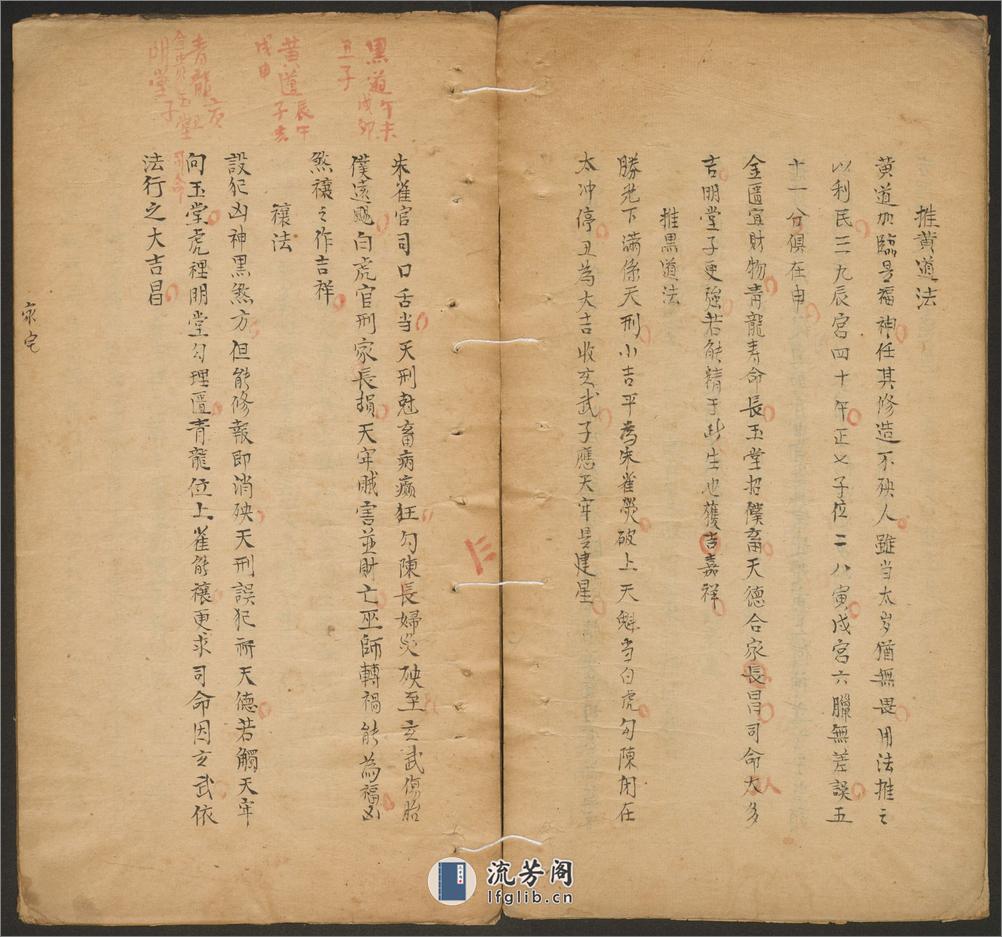 推黄道法
黄道加臨是福神任其修造不殃人雖当太岁猶無畏用法推之
以利民三九辰宮四十午正七子位二八寅戌宮六臘無差誤五
十一分俱在申
金匱宜財物青龍寿命長玉堂招僕畜天德合家長昌司命大多
吉明堂子更強若能精于此生也獲吉嘉祥
推黒道法
勝光下滿係天刑小吉平為朱雀熒破上天魁当白虎勾陳閉在
太冲停丑為大吉收玄武子應天牢是建星
朱雀官司口舌当天刑尅畜病癫狂勾陳長婦災殃至玄武傷胎
僕遠颺白虎官刑家長損天牢賊害並財亡巫師轉禍能為福凶
煞禳之作吉祥
禳法
設犯凶神黒煞方但能修報即消殃天刑誤犯祈天德若觸天牢
向玉堂虎裡明堂勾理匱青龍位上雀能禳更求司命因玄武依
法行之大吉昌
黒道午未
丑子戌卯
黄道辰午
戌申子亥
青龍
玉堂
明堂子
司命
家宅
流芳阁
lfglib.cn